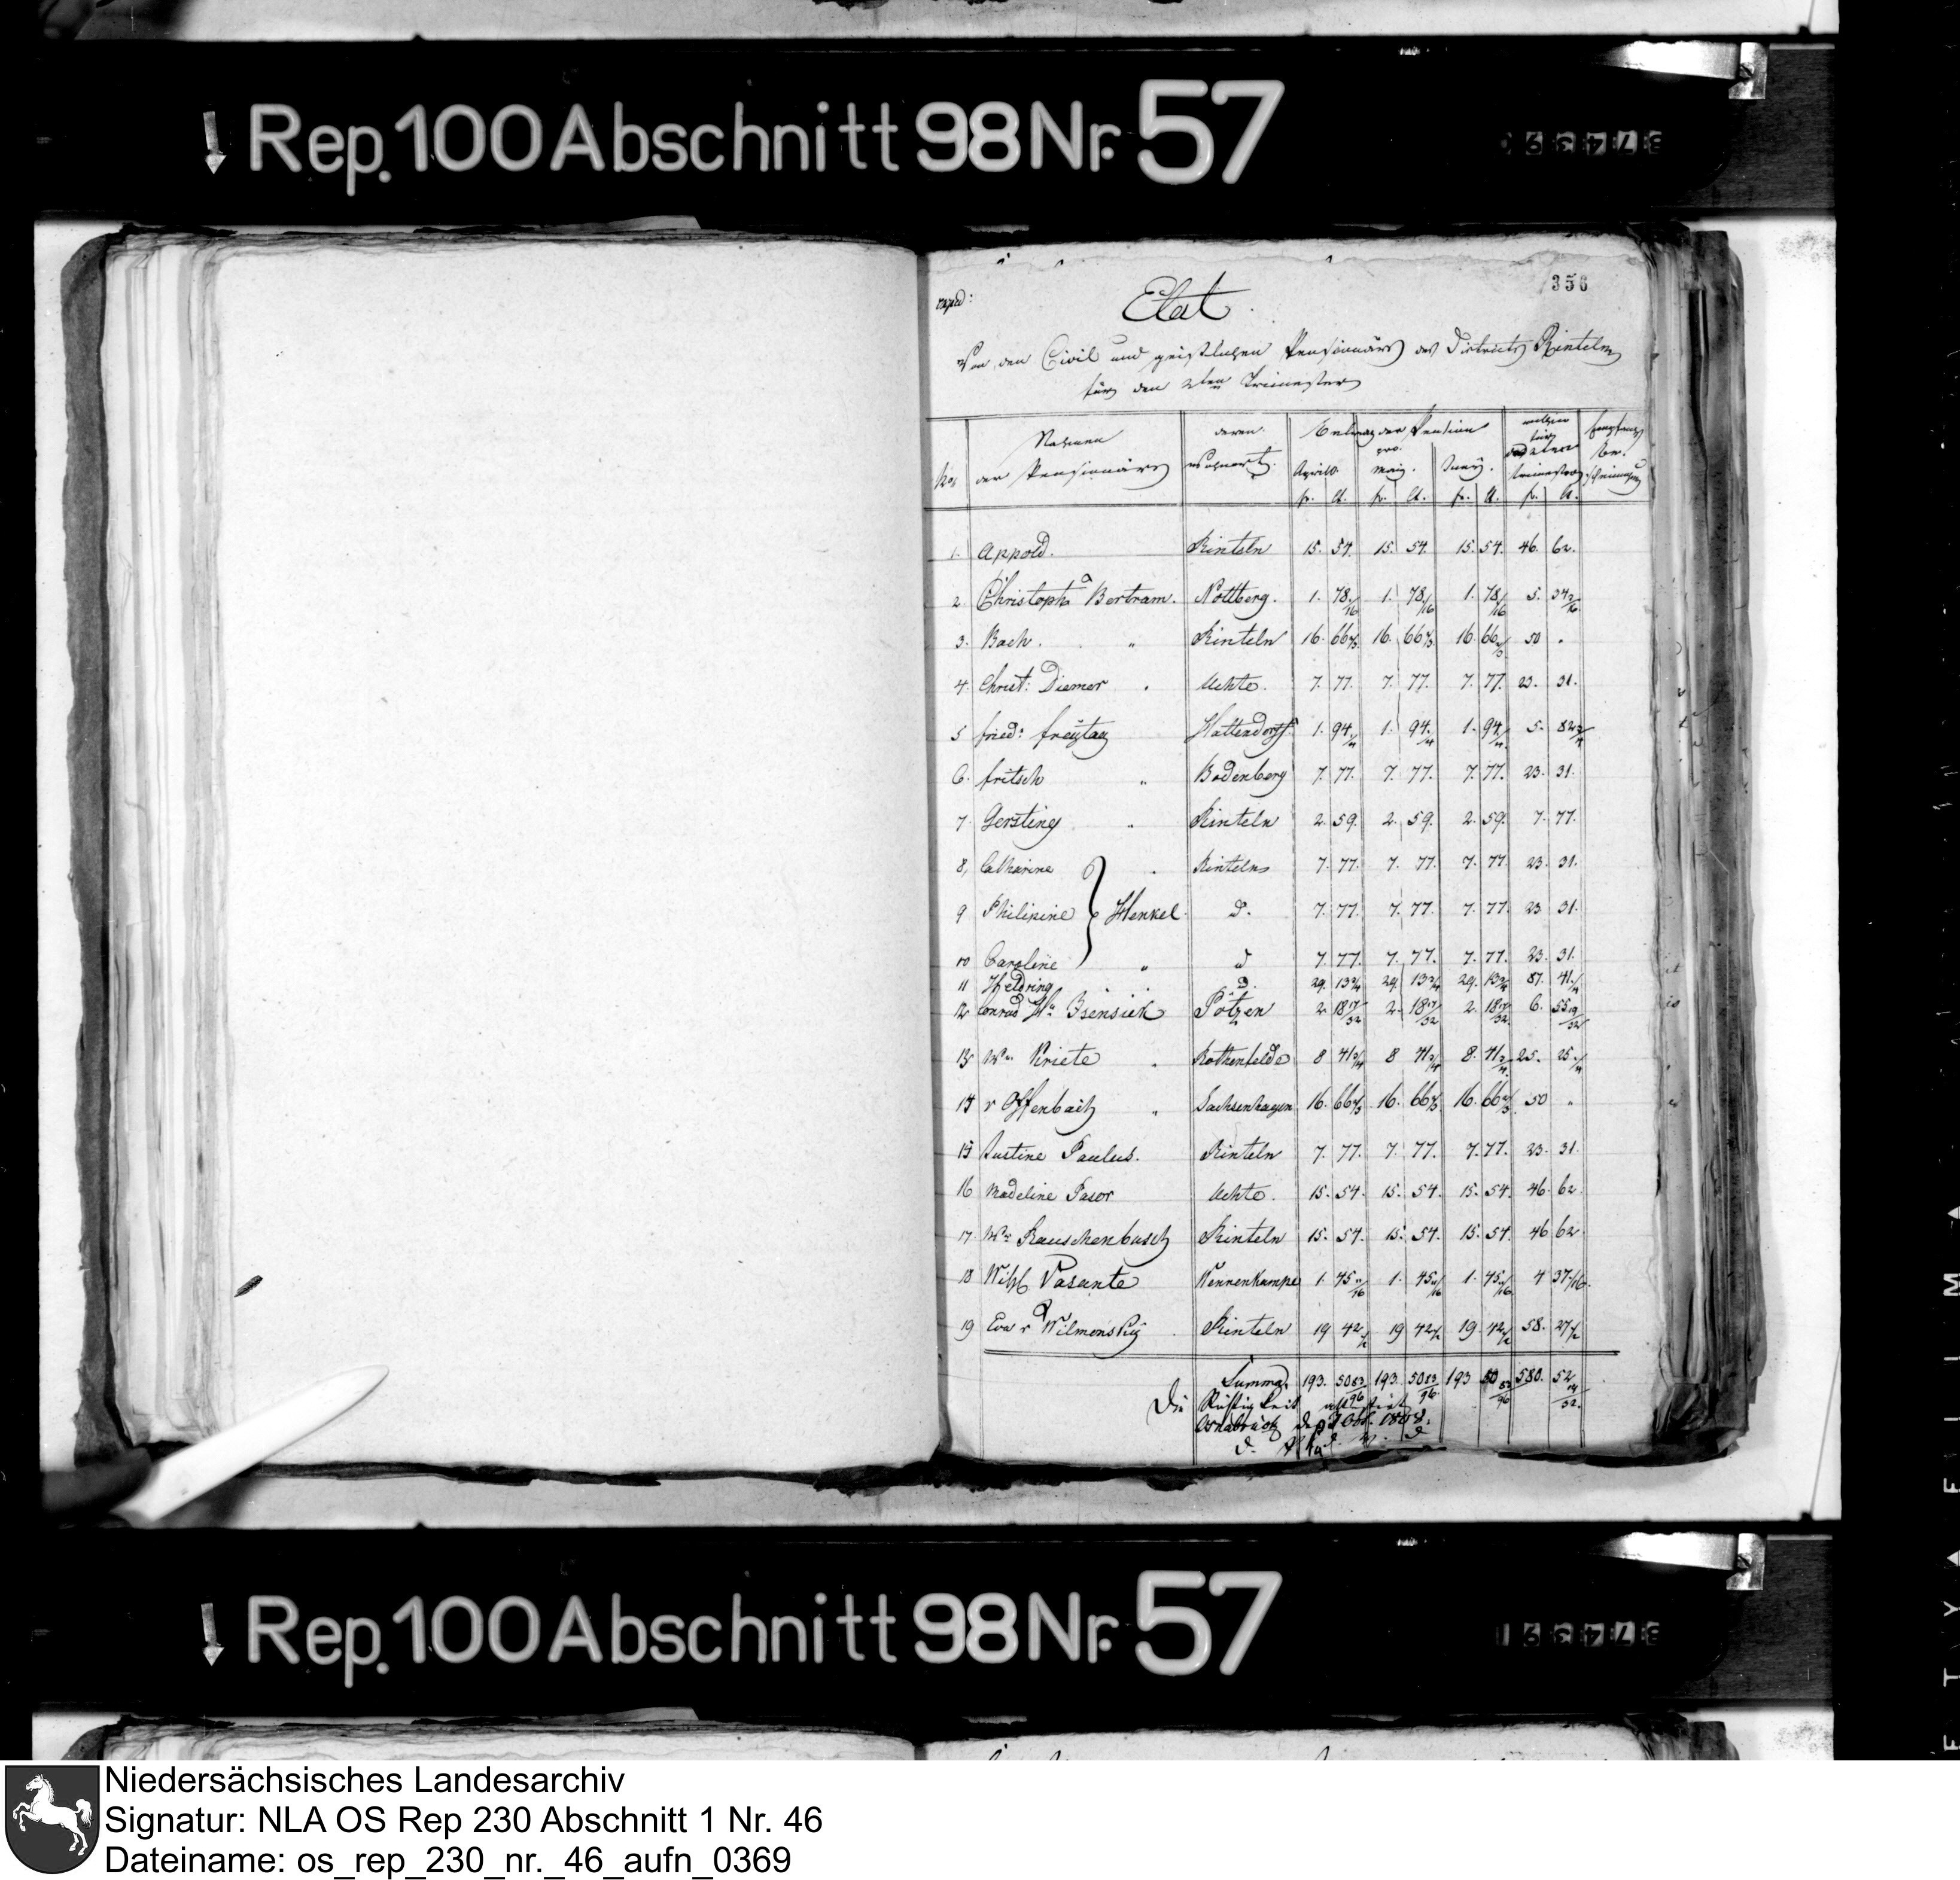 Rep. 100 Abschnitt 98 Nr. 57
356
exped:
Etat.
Von den Civil und geistlichen Pensionärs des Districts Rinteln
für den 2ten Trimester
Nos Nahmen der Pensionärs deren Wohnort. Betrag der Pension pro. Aprill. May. Juny. für das 2te Trimester
fr. Ct. fr. Ct. fr. Ct. fr. Ct.
1. Appold. Rinteln 15. 54. 15. 54. 15. 54. 46. 62.
2. Christoph Bertram. Nottberg. 1. 78. 1/16 1. 78 1/16 1. 78 1/16 5. 34 3/16
3. Bach. " Rinteln 16. 66 2/3 16. 66 2/3 16. 66 2/3 50 "
4. Christ: Diemer Uchte. 7. 77. 7. 77. 7. 77. 23. 31.
5 fried: freytag Hattendorff 1. 94. 1/4 1. 94. 1/4 1. 94. 1/4 5. 82 3/4
6. fritsch " Bodenberg 7. 77. 7. 77. 7. 77. 23. 31.
7. Gersting " Rinteln 2. 59. 2. 59. 2. 59. 7. 77.
8, Catharine Rinteln 7. 77. 7. 77. 7. 77 23. 31.
9 Philipine } Henkel. d. 7. 77. 7. 77. 7. 77. 23 31.
10 Caroline " d 7. 77. 7. 77. 7. 77. 23. 31.
11 Heldring d. 29. 13 3/4 29. 13 3/4 29. 13 3/4 87. 41. 1/4
12 Conrad Hn Bsensiek Pötzen 2. 18 17/32 2. 18 17/32 2. 18 17/32 6. 55 19/32
13 Wn. Kriete Rothenfelde 8 41 3/4 8 41 3/4 8. 41 3/4 25. 25. 1/4
14 v Offenbach " Sachsenhagen 16. 66 2/3 16. 66 2/3 16. 66 2/3 50 "
15 Justine Paulus. Rinteln 7. 77. 7. 77. 7. 77. 23. 31.
16 Madeline Pasor Uchte. 15. 54. 15. 54. 15. 54. 46. 62
17. Wn Rauschenbusch Rinteln 15. 54. 15. 54. 15. 54. 46 62
18 Wilh Vasante Wennenkampe 1. 45 1. 45 1. 45 4 37
19 Eva v Wilmonsky Rinteln 19 42 1/2 19 42 1/2 19. 42 1/2 58. 27 1/2
Summa. 193. 50 83/96 193. 50 83/96 193 50 83/96 580. 52 19/32.
Die Richtigkeit attestirt
Osnabrück 1808.
Rep. 100 Abschnitt 98 Nr. 57
Niedersächsisches Landesarchiv
Signatur: NLA OS Rep 230 Abschnitt 1 Nr. 46
Dateiname: os_rep_230_nr._46_aufn_0369